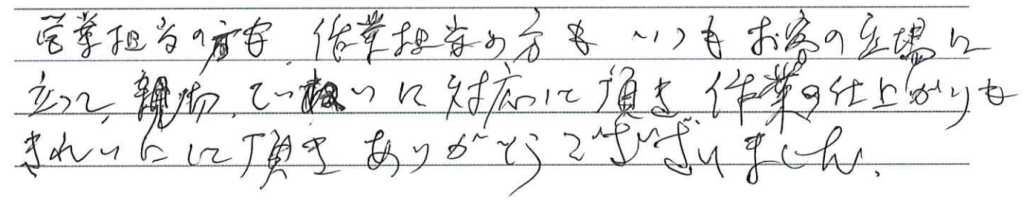 営業担当の方も、作業担当の方も いつも お客の立場に
立って、親切、ていねいに対応して頂き 作業の仕上がりも
きれいにして頂き ありがとうございました。